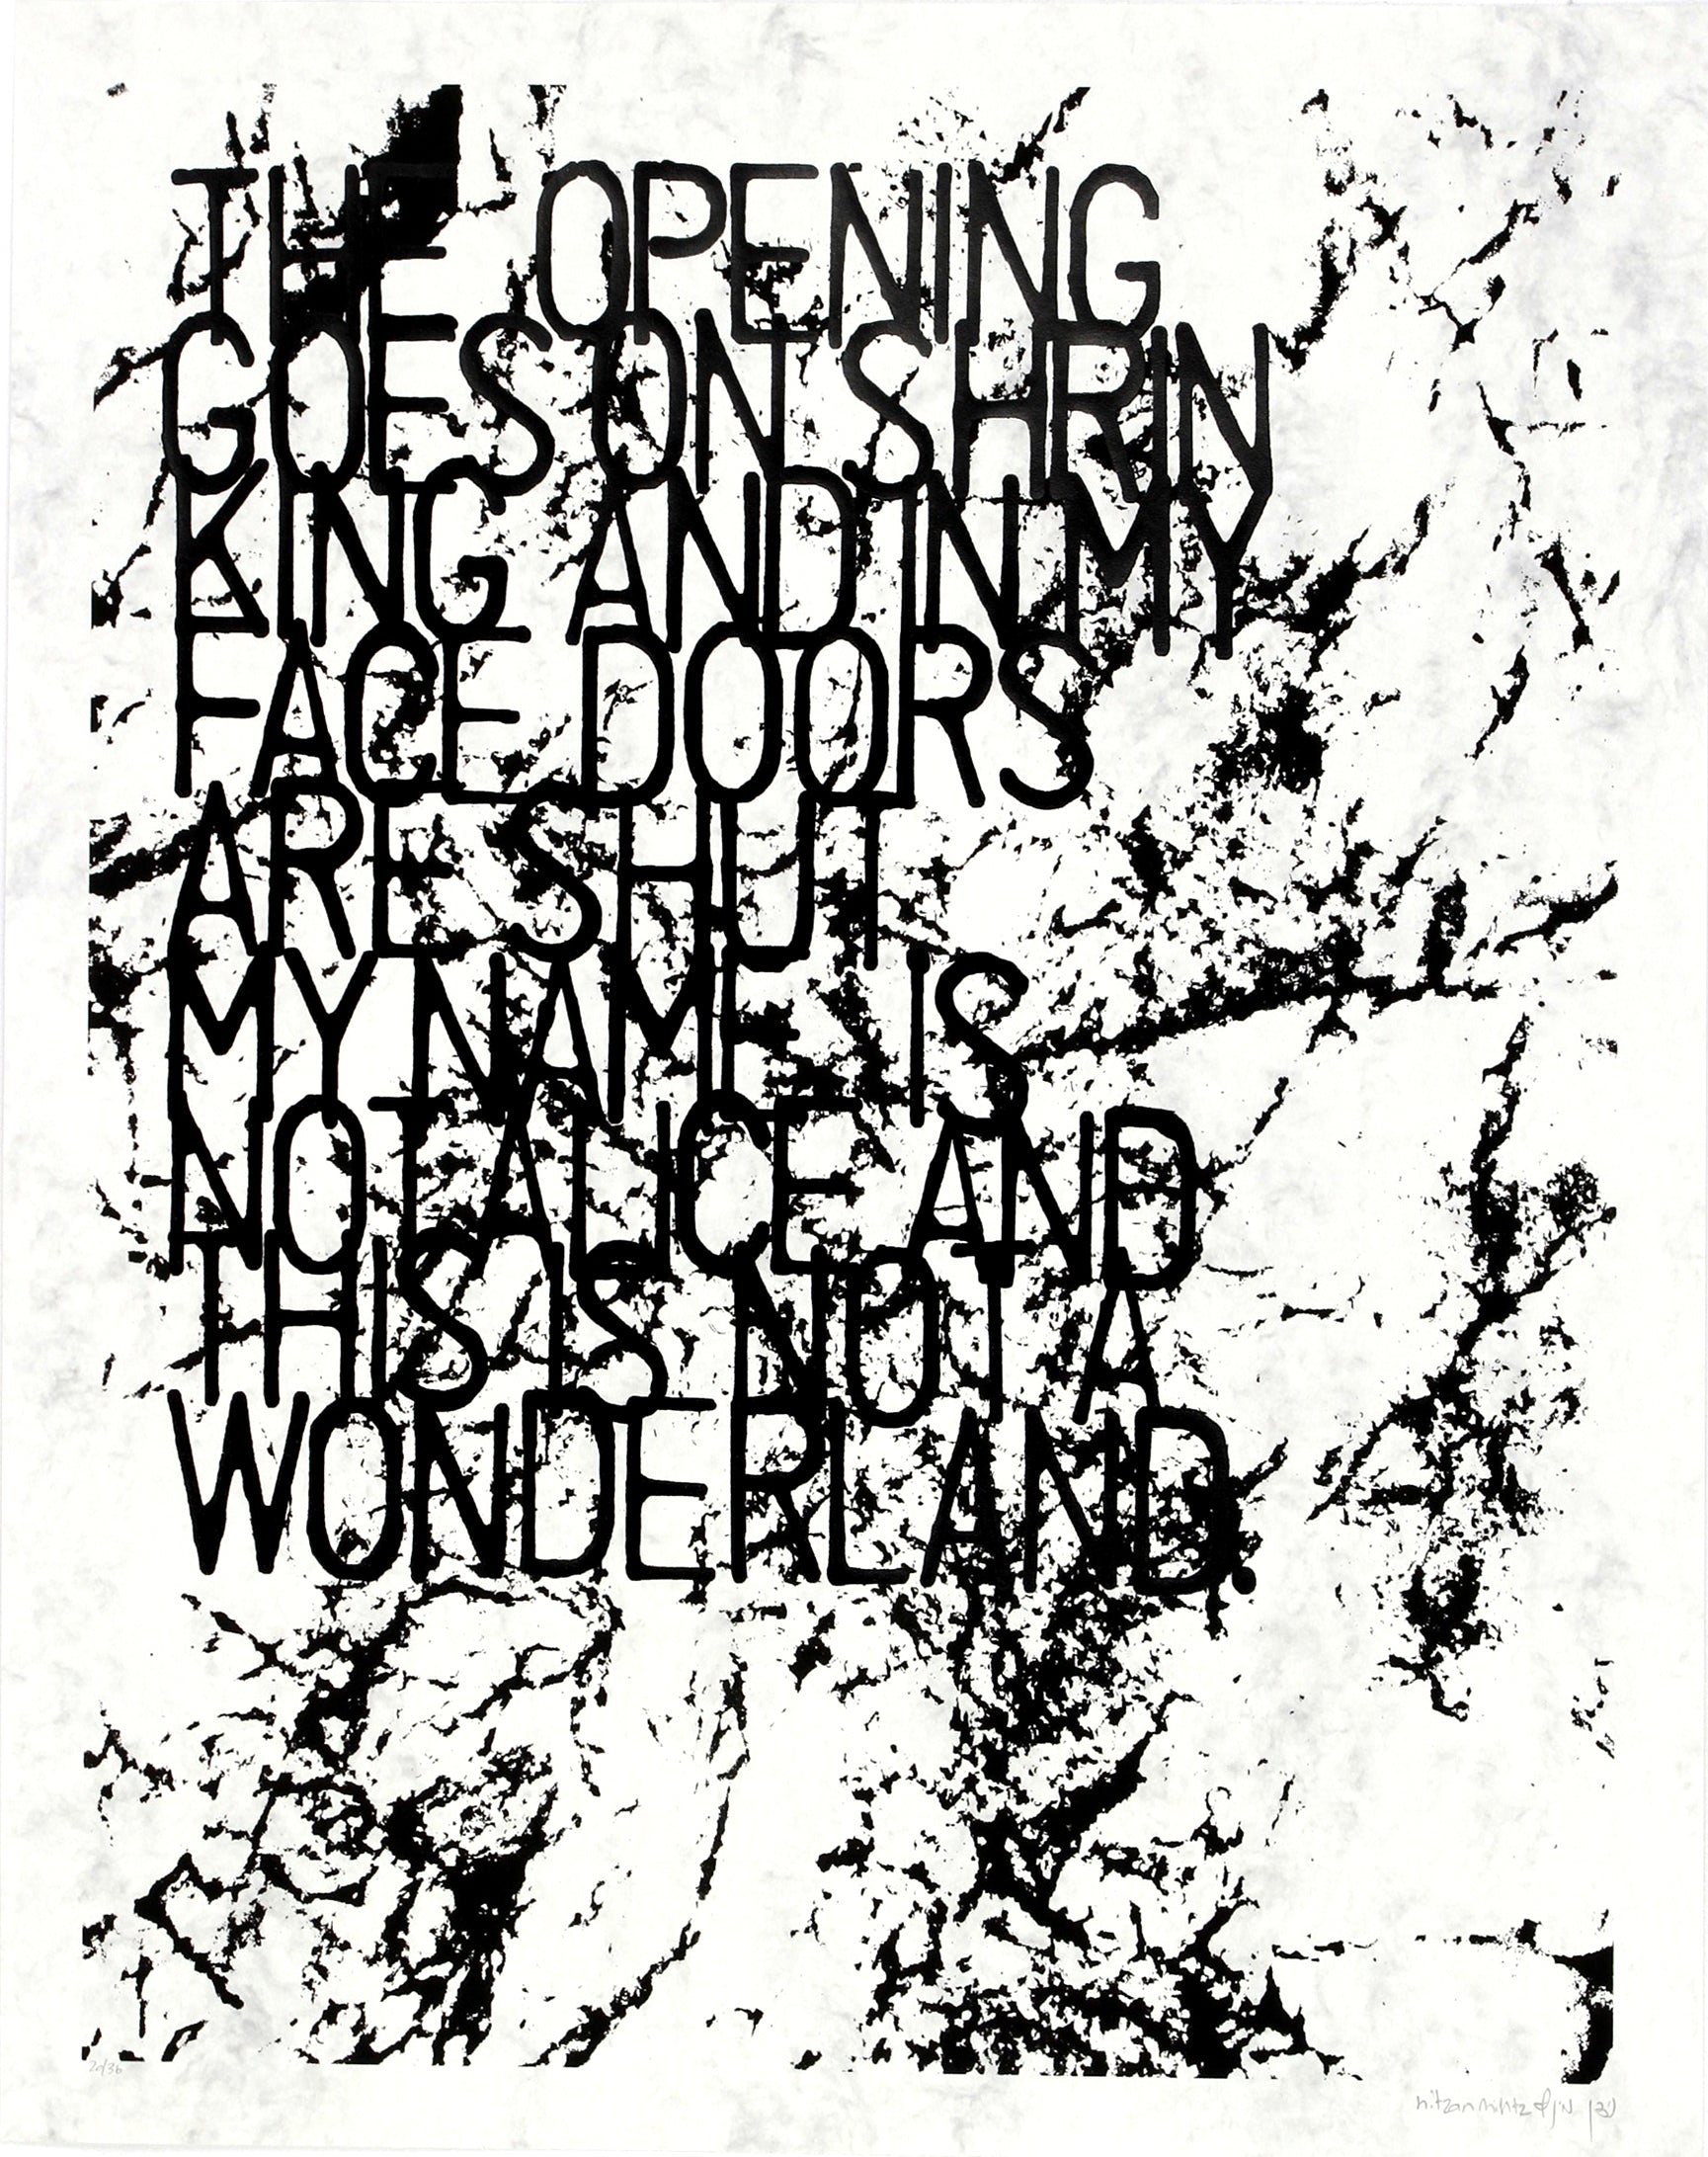 THE OPENING
GOES ON SHRIN
KING AND IN MY
FACE DOORS
ARE SHUT
MY NAME IS
NOT ALICE AND
THIS IS NOT A
WONDERLAND.
20/36
nitzan mintz